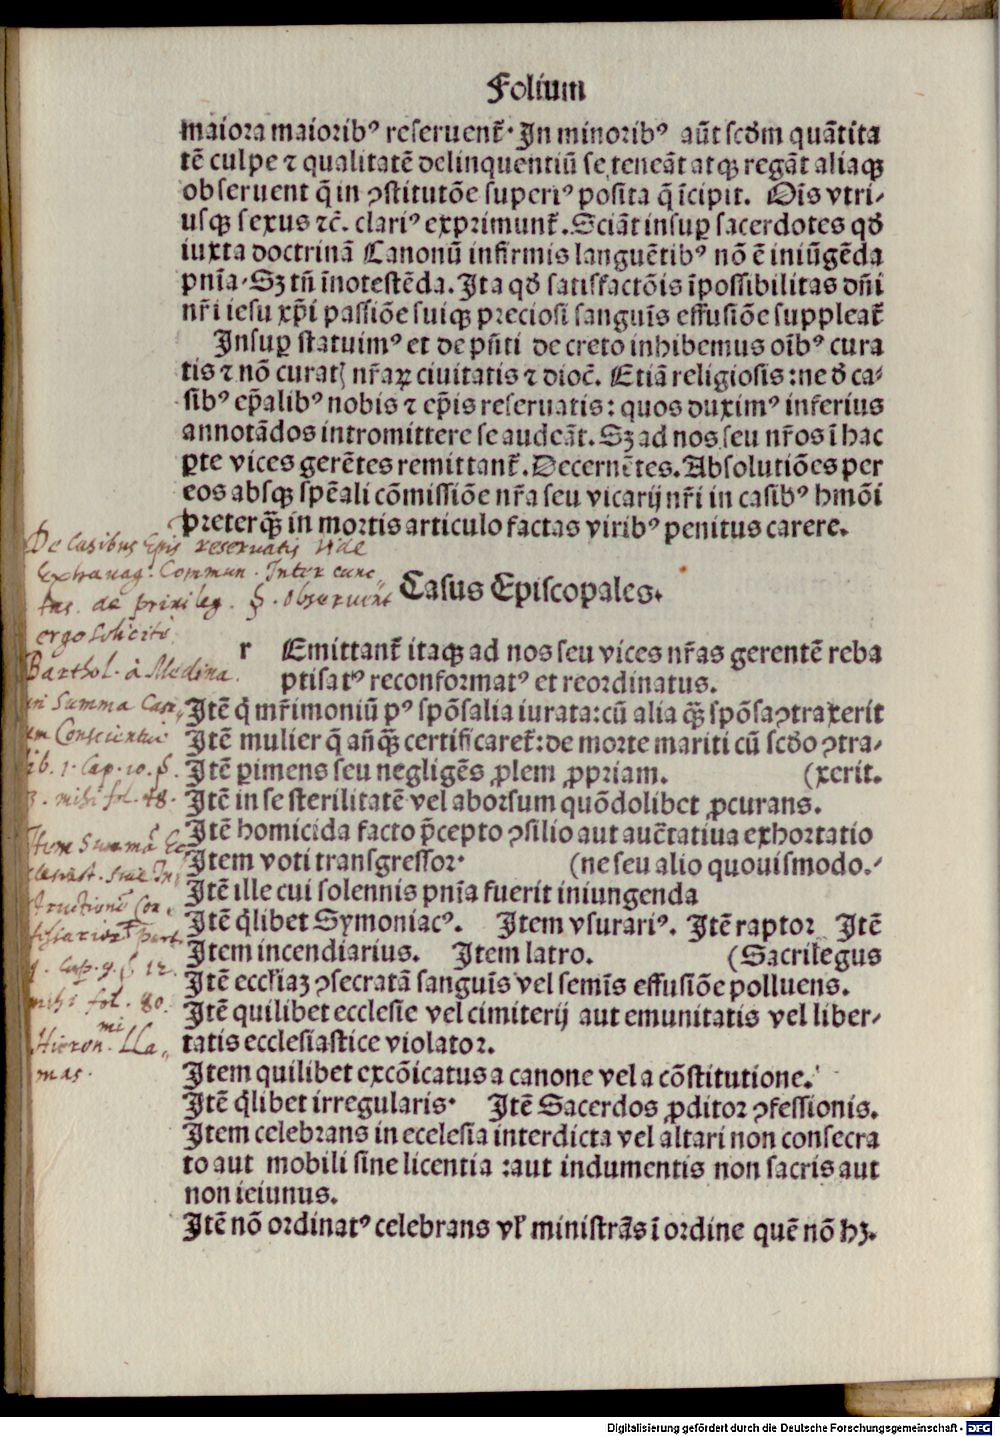 Folium
maiora maiorib⁹ reseruent᷑. In minorib⁹ aūt scd̄m quātita
tē culpe ⁊ qualitatē delinquentiū se teneāt atqꝫ regāt aliaqꝫ
obseruent q̄ in ꝯstitutōe superi⁹ posita q̄ īcipit. Oīs vtri⸗
usqꝫ sexus ⁊c̄. clari⁹ exprimunt᷑. Sciāt insuꝑ sacerdotes qd̄
iuxta doctrinā Canonū infirmis languētib⁹ nō ē iniūgēda
pn̄ia. Sꝫ tn̄ īnotestēda. Ita qd̄ satisfactōis īpossibilitas dn̄i
nr̄i iesu xp̄i passiōe suiqꝫ preciosi sanguīs effusiōe suppleat᷑
Insuꝑ statuim⁹ et de pn̄ti decreto inhibemus oīb⁹ cura
tis ⁊ nō curatꝭ nr̄aꝝ ciuitatis ⁊ dioc̄. Etiā religiosis: ne d̄ ca⸗
sib⁹ ep̄alib⁹ nobis ⁊ ep̄is reseruatis: quos duxim⁹ inferius
annotādos intromittere se audeāt. Sꝫ ad nos seu nr̄os ī hac
ꝑte vices gerētes remittant᷑. Decernētes. Absolutiōes per
eos absqꝫ spēali cōmissiōe nr̄a seu vicarij nr̄i in casib⁹ hmōi
preterqꝫ̄ in mortis articulo factas virib⁹ penitus carere.
De Casibus Epis reseruatis vide
Extravag. Commun. Inter cunc⸗
tas. de priuileg. §. Obseruent
ergo soliciti
Barthol. à Medina.
in Summa Casu⸗
um Conscientiæ
lib. 1. Cap. 10. §.
3. mihi fol. 48.
Item Summā Ec
clesiast. siue In⸗
structionē Con⸗
fessarioꝝ part.
1. Cap. 9. § 12.
mihi fol. 80.
Hieron. Lla⸗
mi
mas.
Casus Episcopales.
r Emittant᷑ itaqꝫ ad nos seu vices nr̄as gerentē reba
ptisat⁹ reconformat⁹ et reordinatus.
Itē q̄ mr̄imoniū p⁹ spōsalia iurata: cū alia qꝫ̄ spōsa ꝯtraxerit
Itē mulier q̄ an̄qꝫ̄ certificaret᷑: de morte mariti cū scd̄o ꝯtra⸗
Itē ꝑimens seu negligēs ꝓlem ꝓpriam. (xerit.
Itē in se sterilitatē vel aborsum quōdolibet ꝓcurans.
Itē homicida facto p̄cepto ꝯsilio aut auc̄tatiua exhortatio
Item voti transgressor. (ne seu alio quouismodo.
Itē ille cui solennis pn̄ia fuerit iniungenda
Itē q̄libet Symoniac⁹. Item vsurari⁹. Itē raptor Itē
Item incendiarius. Item latro. (Sacrilegus
Itē eccl̄iaꝫ ꝯsecratā sanguīs vel semīs effusiōe polluens.
Itē quilibet ecclesie vel cimiterij aut emunitatis vel liber⸗
tatis ecclesiastice violator.
Item quilibet excōicatus a canone vel a cōstitutione.
Itē q̄libet irregularis. Itē Sacerdos ꝓditor ꝯfessionis.
Item celebrans in ecelesia interdicta vel altari non consecra
to aut mobili sine licentia : aut indumentis non sacris aut
non ieiunus.
Itē nō ordinat⁹ celebrans vl̄ ministrās ī ordine quē nō hꝫ.
Digitalisierung gefördert durch die Deutsche Forschungsgemeinschaft - DFG